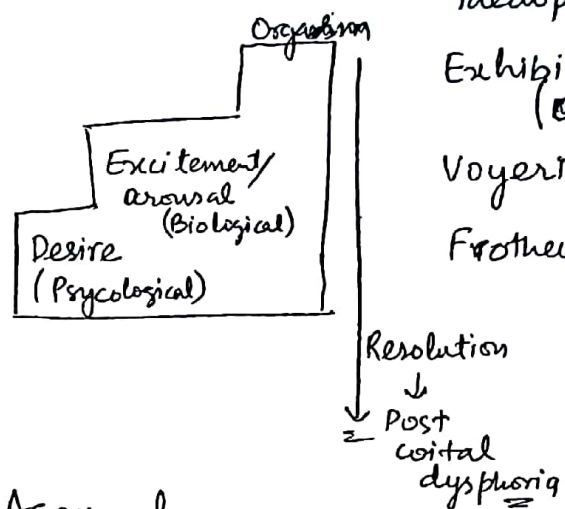 Orgasism
Excitement/
arousal
(Biological)
Desire
(Psycological)
Resolution
↓
Post
coital
dysphoria
Exhibi
Voyeri
Frotheu
Arousal